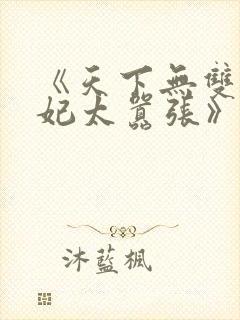 《天下無雙
妃太囂張》
沐藍楓